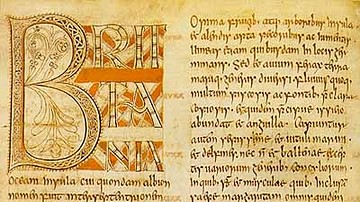 BRIT
TA
NIA
oceani insula cui quondam albion
nomen fuit inter septentrionem
Opima frugibus atq; arboribus insula
et alendis apta pecoribus ac iumentis
uineas etiam quibusdam in locis ger
minans. Sed et auium ferax terra
mariq; generis diuersi fluuiis quoq;
multum piscosis ac fontibus
copiosis, et quidem
abundat et anguilla. Capiuntur
autem et uituli marini
et delfines nec n̄ et ballenae
uariorum
in quib; sunt et musculae quib; inclusam
saepe margaritam omnis quidem